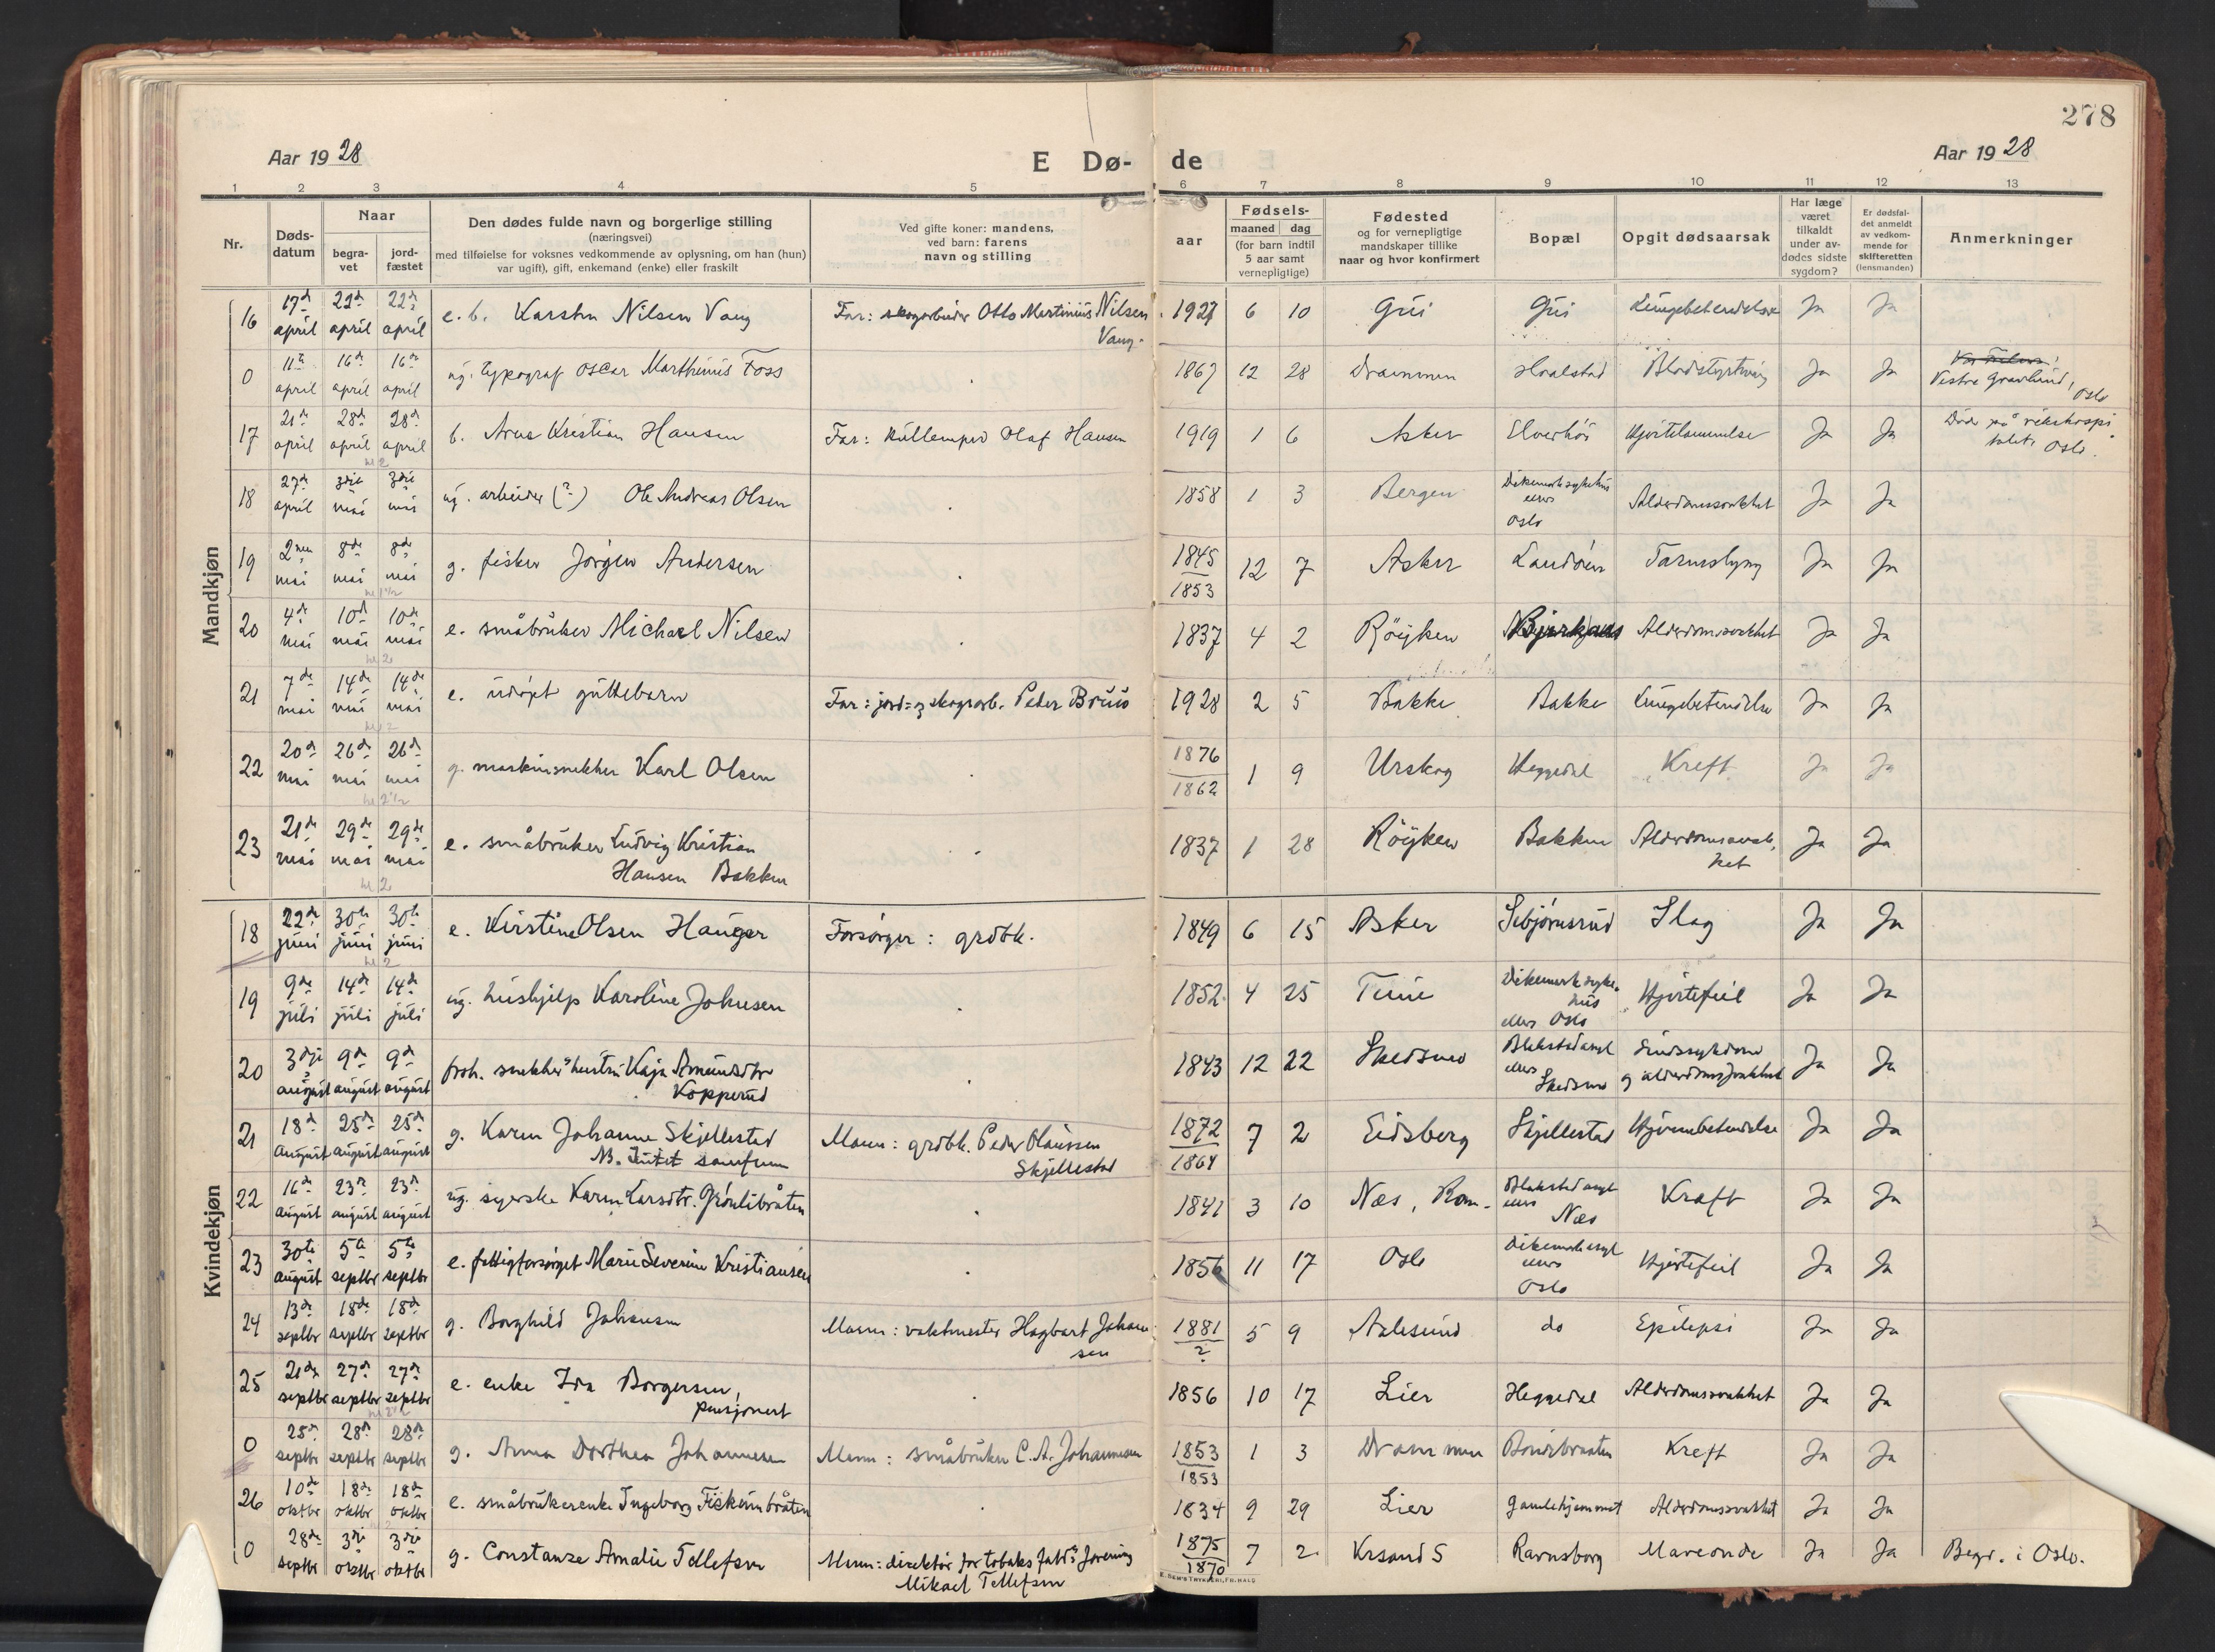 278
Aar 19 28
E Dø-
de
Aar 19 28
1 2 3 4 5 6 7 8 9 10 11 12 13
Nr.
Døds-
datum
Naar
begra-
vet
jord-
fæstet
Den dødes fulde navn og borgerlige stilling
(næringsvei)
med tilføielse for voksnes vedkommende av oplysning, om han (hun)
var ugift), gift, enkemand (enke) eller fraskilt
Ved gifte koner: mandens,
ved barn: farens
navn og stilling
aar
Fødsels-
maaned dag
(for barn indtil
5 aar samt
vernepligtige)
Fødested
og for vernepligtige
mandskaper tillike
naar og hvor konfirmert
Bopæl
Opgit dødsaarsak
Har læge
været
tilkaldt
under av-
dødes sidste
sygdom?
Er dødsfal-
det anmeldt
av vedkom-
mende for
skifteretten
(lensmanden)
Anmerkninger
Mandkjøn
16 17de april 22de april 22de april e. b. Karsten Nilsen Vang Far: skogarbeider Otto Martinius Nilsen Vang. 1927 6 10 Gui Gui Lungebetendelse Ja Ja
0 11te april 16de april 16de april ug. typograf Oscar Marthinius Foss 1867 12 28 Drammen Hvalstad Blodstyrtning Ja Ja Vestre Gravlund, Oslo
17 21de april 28de april 28de april b. Arne Kristian Hansen Far: kullemper Olaf Hansen 1919 1 6 Asker Elverhöi Hjertelammelse Ja Ja Döde på rikshospitalet, Oslo.
hl 2
18 27de april 3die mai 3die mai ug. arbeider (?) Ole Andreas Olsen 1858 1 3 Bergen Dikemark sykehus ellers Oslo Alderdomssvakhet Ja Ja
19 2nen mai 8de mai 8de mai g. fisker Jørgen Andersen 1845 1853 12 7 Asker Landöen Tarmslyng Ja Ja
hl 1 1/2
20 4de mai 10de mai 10de mai e. småbruker Michael Nilsen 1837 4 2 Röyken Bjerkaas Alderdomssvakhet Ja Ja
hl 2
21 7de mai 14de mai 14de mai e. udöpt guttebarn Far: jord= og skogsarb. Peder Bruus 1928 2 5 Bakke Bakke Lungebetendelse Ja Ja
hl 2
22 20de mai 26de mai 26de mai g. maskinsnekker Karl Olsen 1876 1862 1 9 Urskog Heggedal Kreft Ja Ja
hl 2 1/2
23 21de mai 29de mai 29de mai e. småbruker Ludvig Kristian Hansen Bakken 1837 1 28 Röyken Bakken Alderdomssvakhet Ja Ja
hl 2
Kvindekjøn
18 22de juni 30te juni 30te juni e. Kirstine Olsen Hauger Forsørger: grdbk. 1849 6 15 Asker Sebjörnsrud Slag Ja Ja
hl 2
19 9de juli 14de juli 14de juli ug. hushjelp Karoline Johnsen 1852 4 25 Tune Dikemark sykehus ellers Oslo Hjertefeil Ja Ja
20 3dje august 9de august 9de august frsk. snekkers hustru Kaja Amundsdtr Kopperud 1843 12 22 Skedsmo Blakstad asyl ellers Skedsmo Sindssykdom og alderdomssvakhet Ja Ja
21 18de august 25de august 25de august g. Karen Johanne Skjellestad Mann: grdbk. Peder Olaussen Skjellestad 1872 1864 7 2 Eidsberg Skjellestad Hjernebetendelse Ja Ja
NB. Intet samfunn
22 16de august 23de august 23de august ug. syerske Karen Larsdtr. Grönlibråten 1841 3 10 Næs, Rom. Blakstad asyl ellers Næs Kræft Ja Ja
23 30te august 5te septbr 5te septbr e. fattigforsörget Marie Severine Kristiansen 1856 11 17 Oslo Dikemark asyl ellers Oslo Hjertefeil Ja Ja
24 13de septbr 18de septbr 18de septbr g. Borghild Johansen Mann: vaktmester Hagbart Johansen 1881 ? 5 9 Aalesund do Epilepsi Ja Ja
25 21de septbr 27de septbr 27de septbr e. enke Ida Borgersen, pensjonert 1856 10 17 Lier Heggedal Alderdomssvakhet Ja Ja
0 25de septbr 28de septbr 28de septbr g. Anna Dorthea Johannesen Mann: småbruker C. A. Johannesen 1853 1853 1 3 Drammen Bondibraaten Kreft Ja Ja
26 10de oktbr 18de oktbr 18de oktbr e. småbrukerenke Ingeborg Fiskumbråten 1834 9 29 Lier Gamlehjemmet Alderdomssvakhet Ja Ja
0 28de septbr 3dje oktbr 3dje oktbr g. Constanze Amalie Tellefsen Mann: direktör for tobaksfabr.s forening Mikael Tellefsen 1875 1870 7 2 Krsand S Ravnsborg Maveonde Ja Ja Begr. i Oslo.